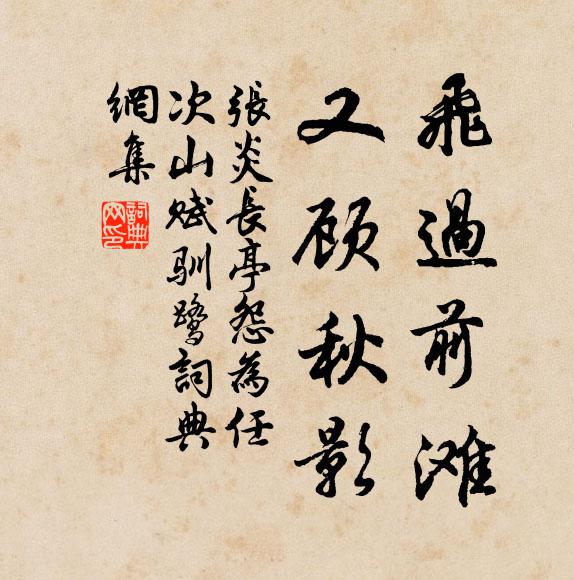 飛過前滩
又顾秋影
張炎長亭怨為任
次山赋馴鹭詞典
網集
詞典網印